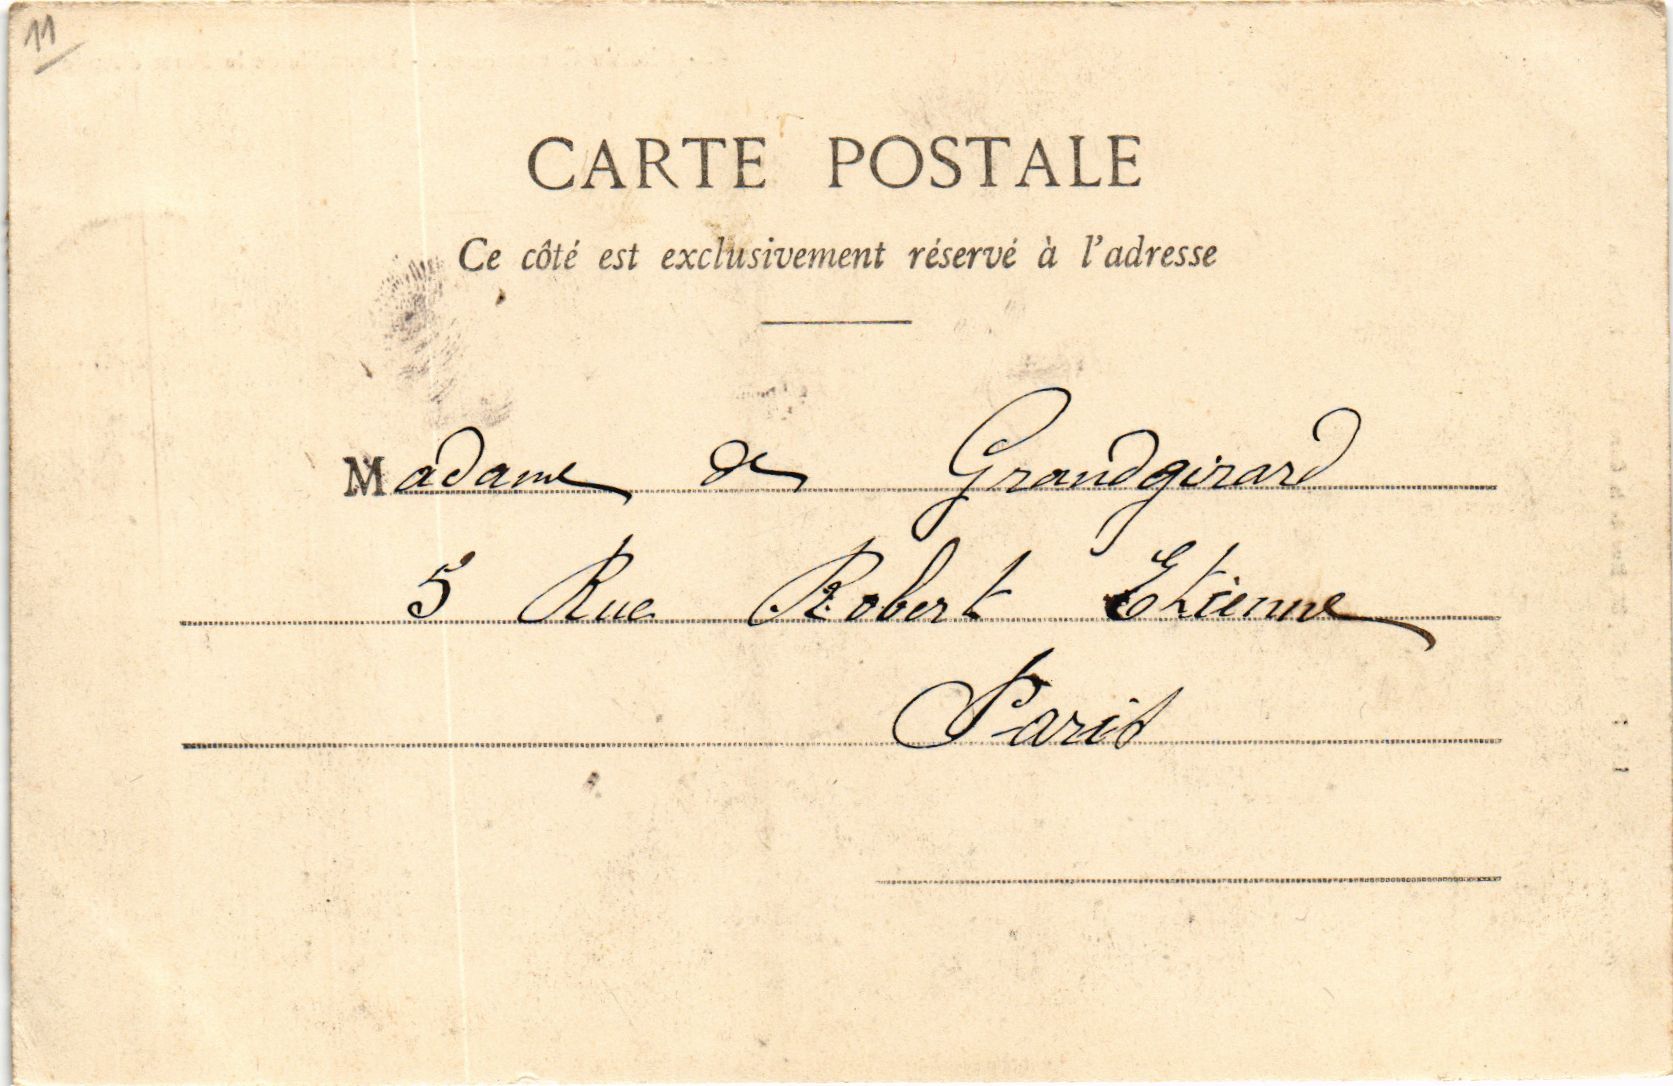 11
CARTE POSTALE
Ce côté est exclusivement réservé à l'adresse
Madame de Grandgirard
5 Rue Robert Etienne
Paris